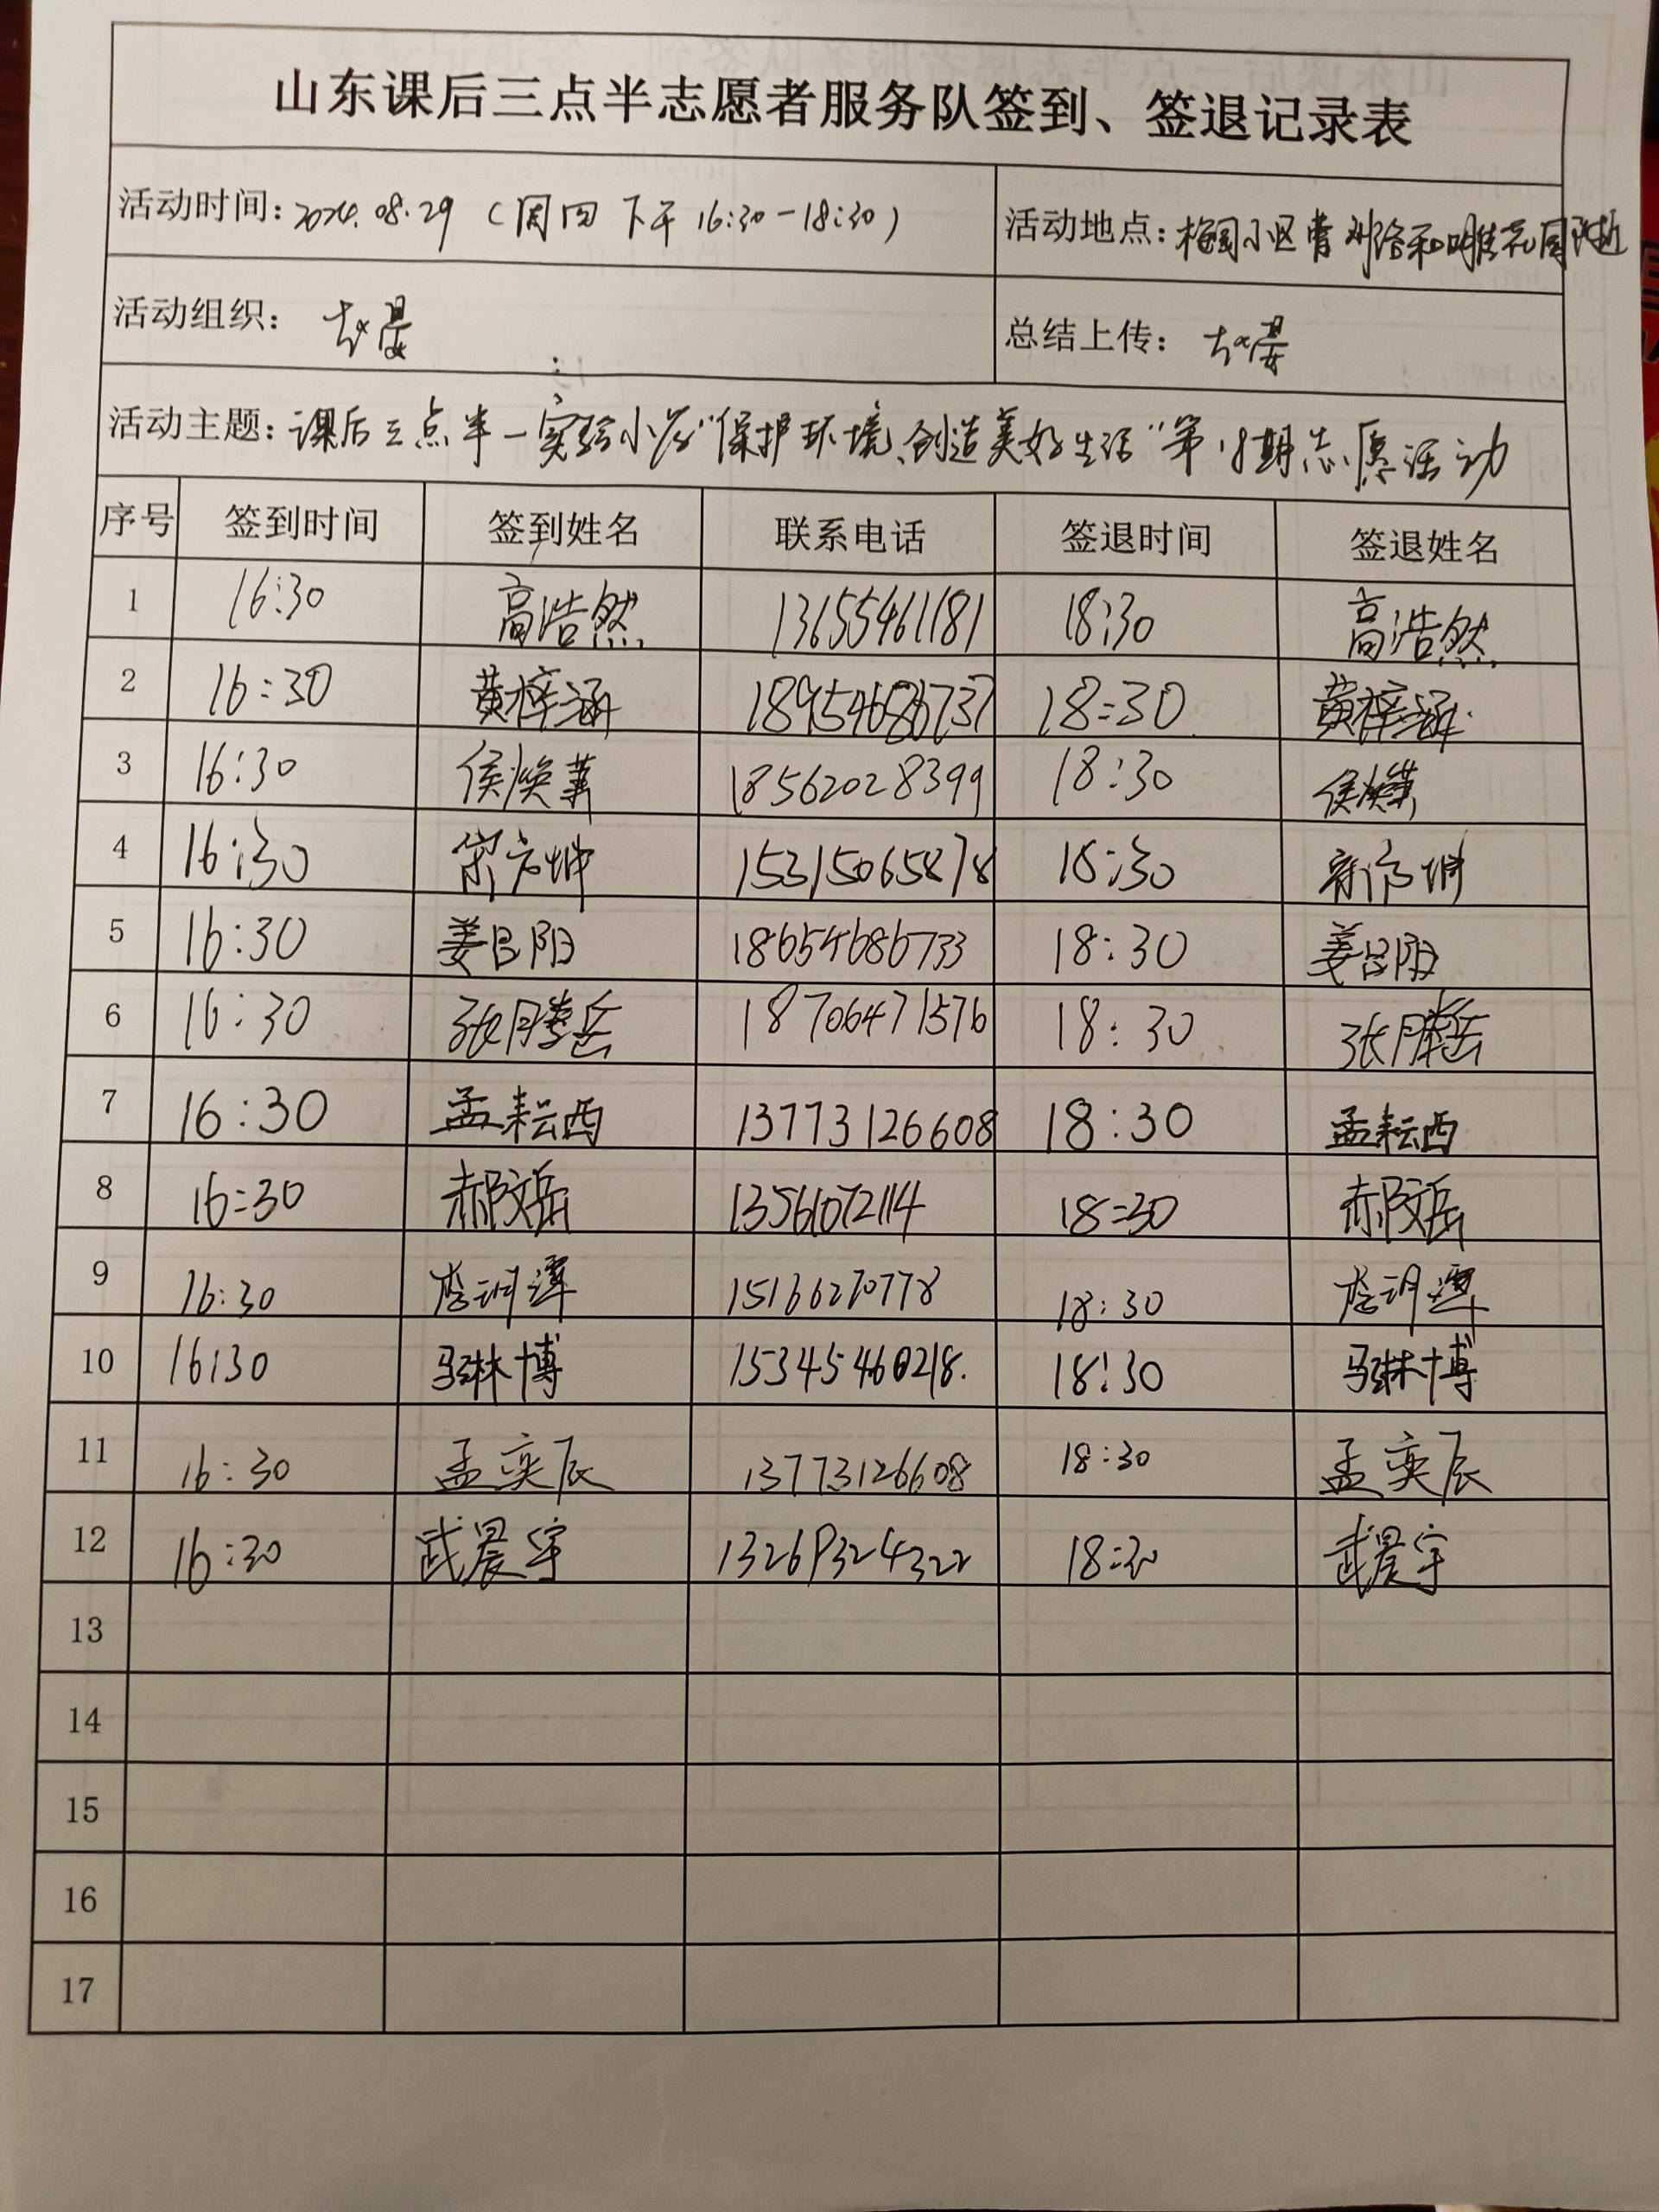 山东课后三点半志愿者服务队签到、签退记录表
活动时间：2024.08.29（周四 下午 16:30-18:30） 活动地点：梅园小区曹州路和明佳花园附近
活动组织：赵晏 总结上传：赵晏
活动主题：课后三点半—实验小学"保护环境、创造美好生活"第18期志愿活动
序号 签到时间 签到姓名 联系电话 签退时间 签退姓名
1 16:30 高浩然 13655461181 18:30 高浩然
2 16:30 黄梓涵 18954686737 18:30 黄梓涵
3 16:30 侯焕 18562028399 18:30 侯焕
4 16:30 15315065878 18:30
5 16:30 姜吕阳 18654686733 18:30 姜吕阳
6 16:30 张腾岳 18706471576 18:30 张腾岳
7 16:30 孟耘西 13773126608 18:30 孟耘西
8 16:30 郝文岳 13561072114 18:30 郝文岳
9 16:30 李润泽 15166270778 18:30 李润泽
10 16:30 马琳博 15345460218. 18:30 马琳博
11 16:30 孟奕辰 13773126608 18:30 孟奕辰
12 16:30 武晨宇 13269324322 18:30 武晨宇
13
14
15
16
17